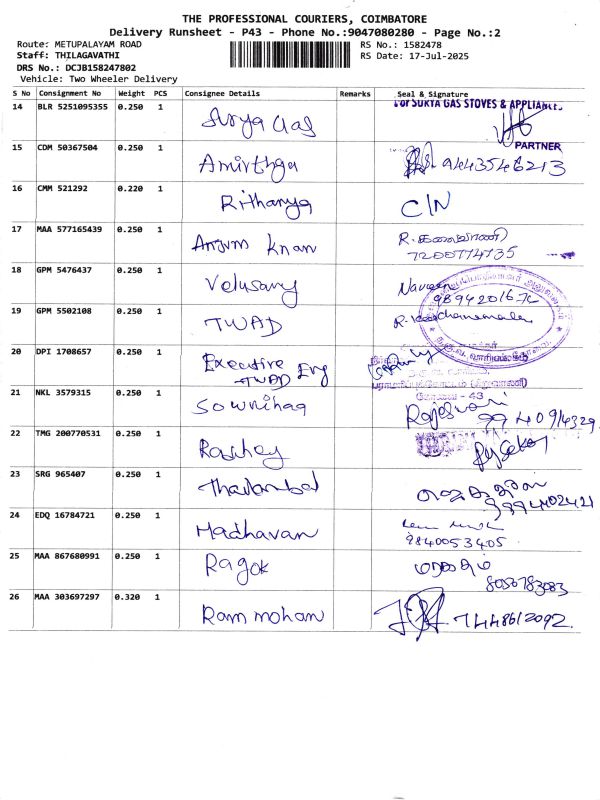 THE PROFESSIONAL COURIERS, COIMBATORE
Delivery Runsheet - P43 - Phone No.:9047080280 - Page No.:2
Route: METUPALAYAM ROAD RS No.: 1582478
Staff: THILAGAVATHI RS Date: 17-Jul-2025
DRS No.: DCJB158247802
Vehicle: Two Wheeler Delivery
S No Consignment No Weight PCS Consignee Details Remarks Seal & Signature
14 BLR 5251095355 0.250 1 Surya Gas For SURYA GAS STOVES & APPLIANCES
PARTNER
15 CDM 50367504 0.250 1 Amirthga 9443546213
16 CMM 521292 0.220 1 Rithanya C/N
17 MAA 577165439 0.250 1 Anjum Khan R. கலைவாணி
7200774735
18 GPM 5476437 0.250 1 Velusamy Naveen
9894220167
19 GPM 5502108 0.250 1 TWAD
20 DPI 1708657 0.250 1 Executive
TWAD Eng
21 NKL 3579315 0.250 1 Sownihaa கோவை - 43
Rajeswari
9940914329
22 TMG 200770531 0.250 1
23 SRG 965407 0.250 1 Thailambal
9994402421
24 EDQ 16784721 0.250 1 Madhavan
9840053405
25 MAA 867680991 0.250 1 Ragok
8056783083
26 MAA 303697297 0.320 1 Ram mohan 7448612092